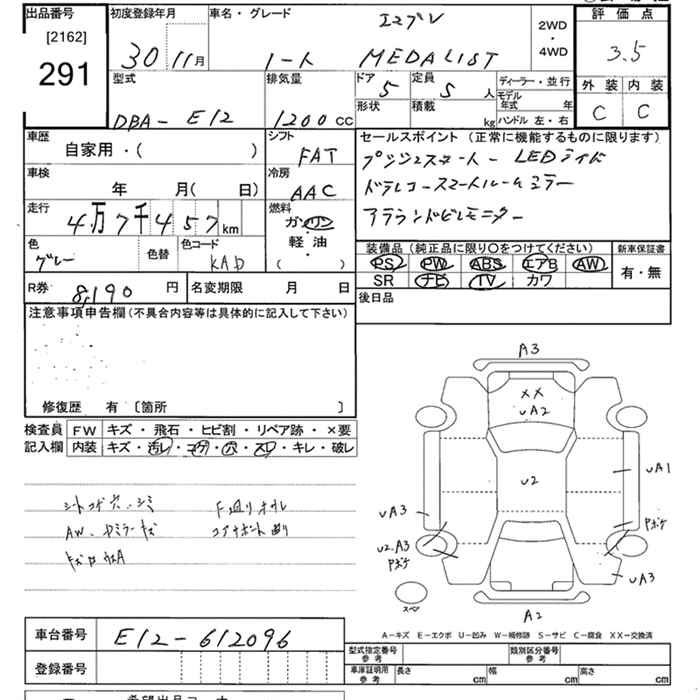 出品番号 初度登録年月 車名・グレード 2WD・4WD 評価点
[2162]
291 30 11月 ノート MEDALIST 3.5
型式 排気量 ドア 5 定員 5人 ディーラー・並行 外装 内装
形状 積載 kg モデル年式 年 C C
DBA-E12 1200cc ハンドル 左・右
車歴 シフト セールスポイント (正常に機能するものに限ります)
自家用・( ) FAT プッシュスタート LEDライト
車検 冷房 ドラレコ スマートルームミラー
年 月( 日) AAC アラウンドビューモニター
走行 燃料
4万7千457km ガソリン
軽油
( )
色 色替 色コード
グレー KAD
装備品 (純正品に限り○をつけてください) 新車保証書
PS PW ABS エアB AW 有・無
SR ナビ TV カワ
R券 8,190円 名変期限 月 日 後日品
注意事項申告欄(不具合内容等は具体的に記入して下さい)
修復歴 有 〔箇所 〕
検査員 FW キズ・飛石・ヒビ割・リペア跡・×要
記入欄 内装 キズ・汚レ・コゲ・穴・スレ・キレ・破レ
シートコゲ穴、シミ
A3
XX
UA2
U2
UA1
UA3
U2.A3
Pボケ
Pボケ
UA3
A2
スペア
A-キズ E-エクボ U-凹み W-補修跡 S-サビ C-腐食 XX-交換済
車台番号 E12-612096
登録番号
型式指定番号 参考 類別区分番号 参考
車庫証明用 参考 長さ cm 幅 cm 高さ cm
希望出品コーナー